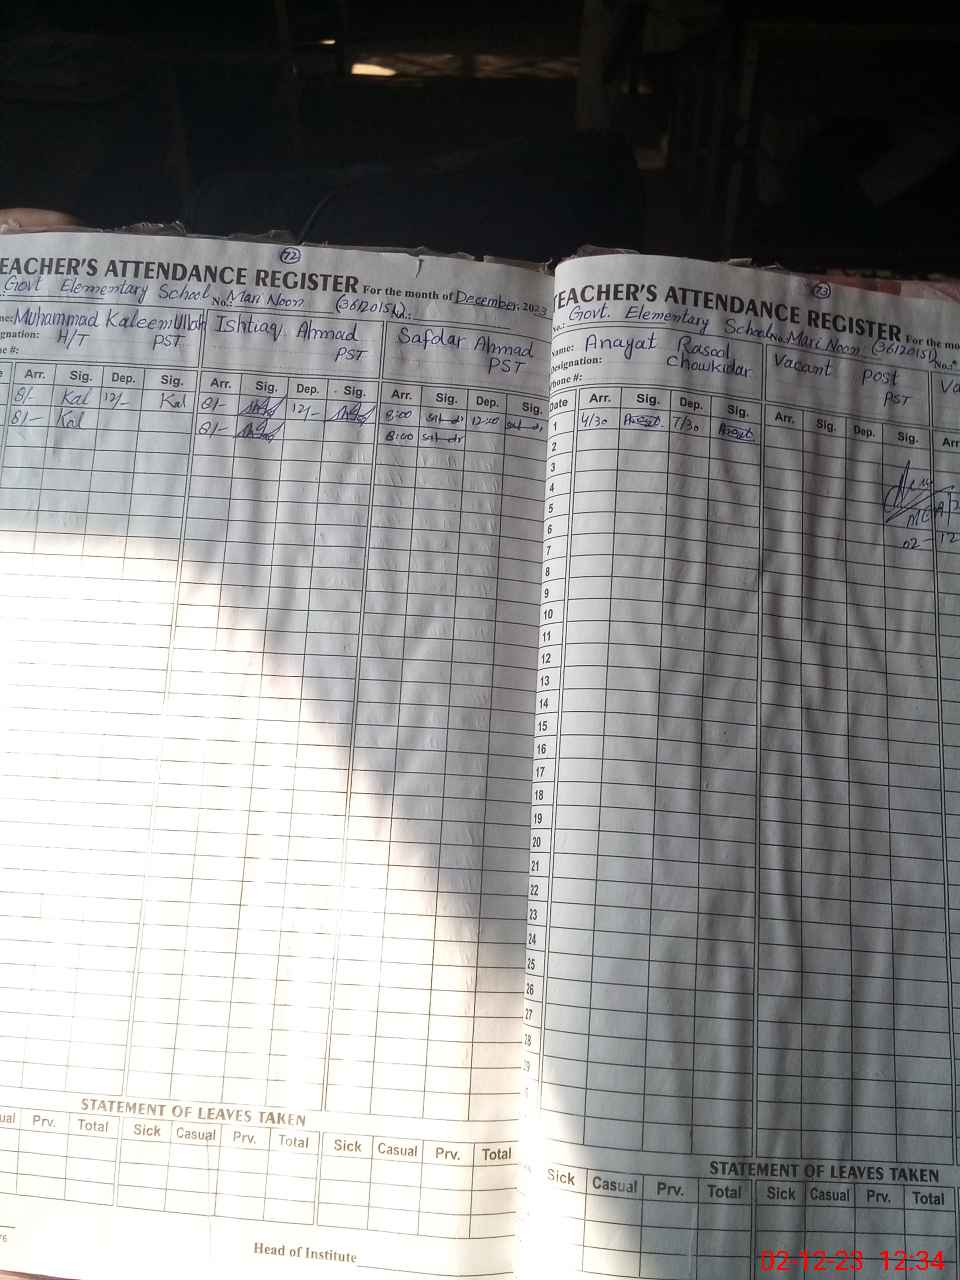 72
EACHER'S ATTENDANCE REGISTER For the month of December, 2023
Govt Elementary School No.: Mari Noon (36120151) No.:
me: Muhammad Kaleemullah Ishtiaq Ahmad Safdar Ahmad
gnation: H/T PST PST PST
ne #:
e Arr. Sig. Dep. Sig. Arr. Sig. Dep. Sig. Arr. Sig. Dep. Sig.
8/- Kal 12/- Kal 8/- 12/- 8:00 12:00
8/- Kal 8/- 8:00
STATEMENT OF LEAVES TAKEN
ual Prv. Total Sick Casual Prv. Total Sick Casual Prv. Total
Head of Institute
76
73
TEACHER'S ATTENDANCE REGISTER For the mo
No.: Govt. Elementary School No.: Mari Noon (36120151) No.:
Name: Anayat Rasool Vacant post Va
Designation: Chowkidar PST
Phone #:
Date Arr. Sig. Dep. Sig. Arr. Sig. Dep. Sig. Arr
1 4/30 7/30
2
3
4
5
6
7 02-12
8
9
10
11
12
13
14
15
16
17
18
19
20
21
22
23
24
25
26
27
28
STATEMENT OF LEAVES TAKEN
Sick Casual Prv. Total Sick Casual Prv. Total
02-12-23 12:34